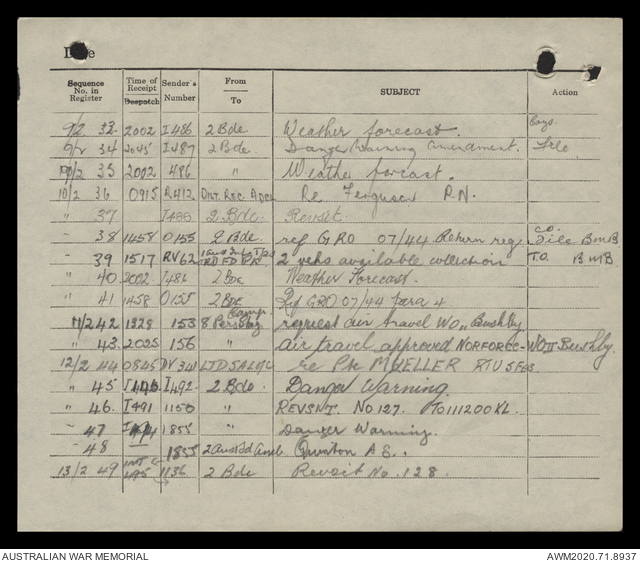 Date
Sequence No. in Register Time of Receipt Despatch Sender's Number From To SUBJECT Action
9/2 33 2002 I486 2 Bde Weather forecast.
9/2 34 2045 I487 2 Bde. Danger Warning Amendment. File
10/2 35 2002 486 " Weather forcast.
10/2 36 0915 R412 Re Ferguson P.N.
" 37 I488 2 Bde. Revsit.
- 38 1458 O155 2 Bde ref GRO 07/44 Return reg C.O. File BMB
- 39 1517 RV62 2 vehs available collection T.O. BMB
" 40 2002 I486 2 Bde Weather Forecast.
" 41 1458 O155 2 BDE Ref GRO 07/44 para 4
11/2 42 1228 153 8 Pers request air travel WOII Bushby
" 43 2025 156 " Air travel approved NORFORCE - WOII Bushby.
12/2 44 0845 DV341 re Pte MUELLER RTU 5 Feb
" 45 I492. 2 Bde. Danger Warning.
" 46. I491 1150 " REVSNT. No 127. TO 111200KL.
- 47 1855 " Danger Warning.
- 48 1855 2 Aust Fd Amb A.S..
13/2 49 1136 2 Bde Revsit No 128.
AUSTRALIAN WAR MEMORIAL AWM2020.71.8937